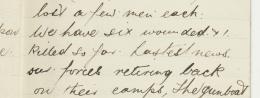 lost a few men each.
We have six wounded & 1
killed so far. Lastest news.
our forces retiring back
on their camps, The gunboat